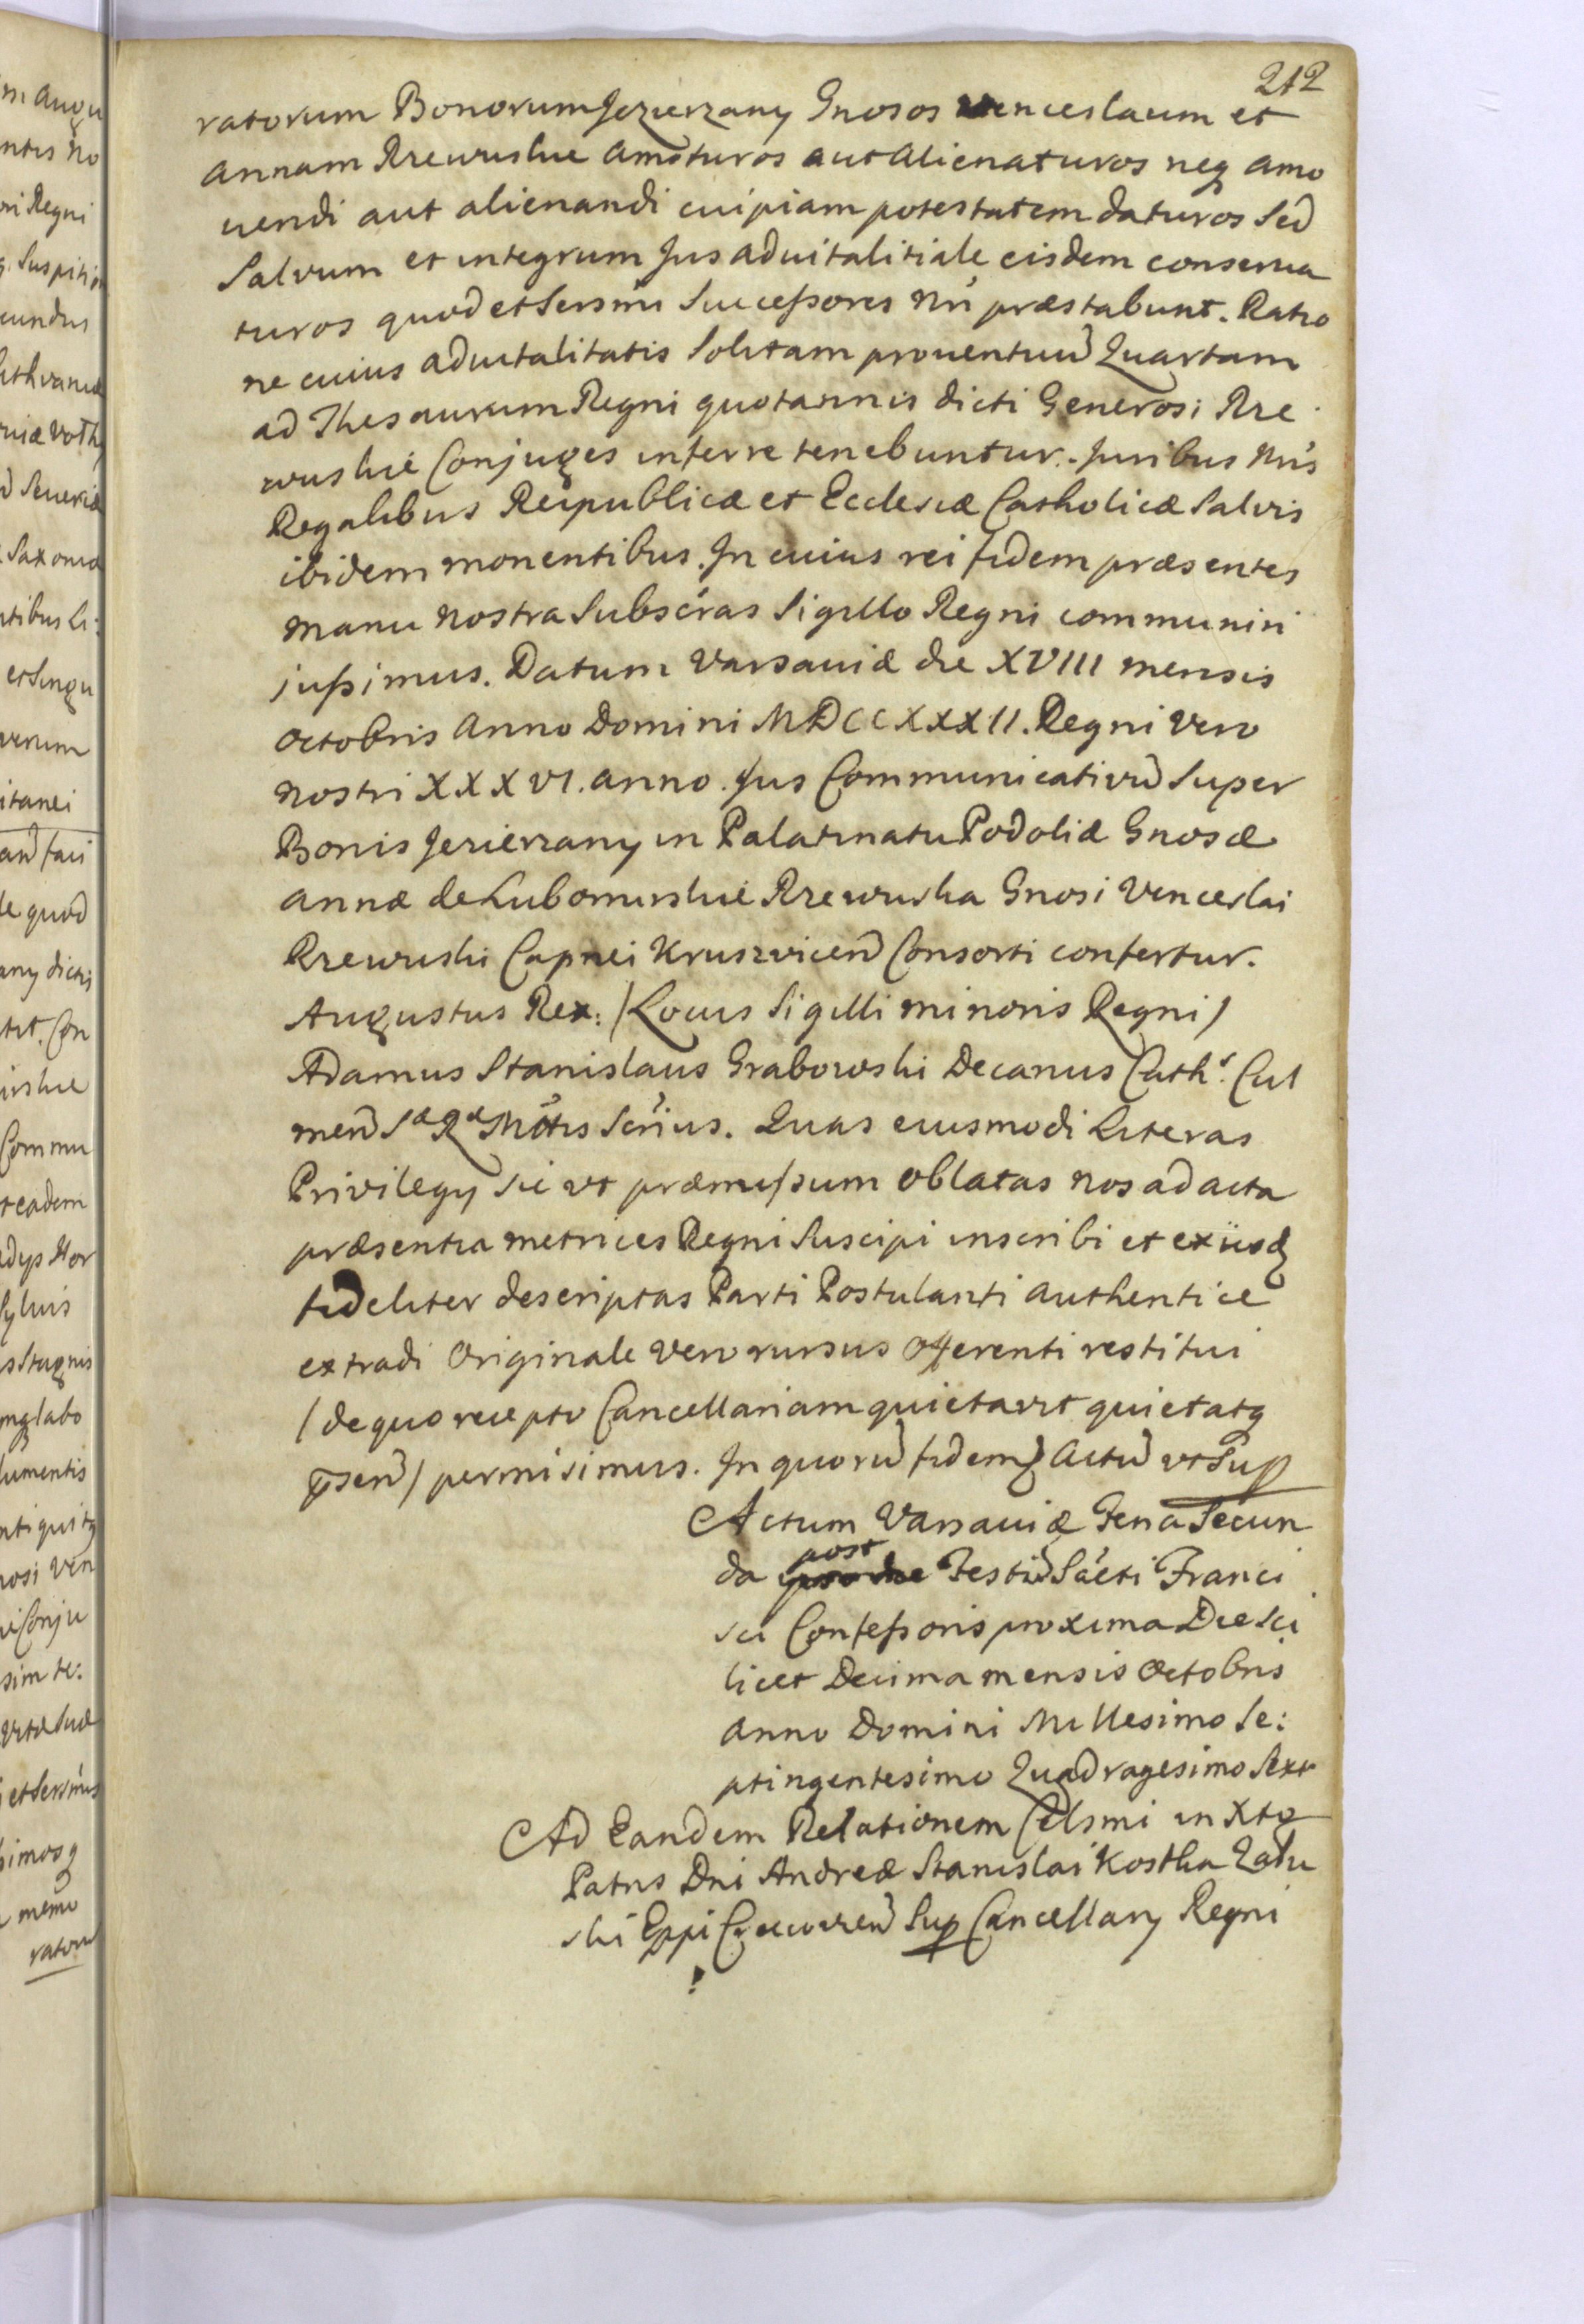 212
ratorum Bonorum Jezierzany Gnosos Venceslaum et
Annam Rzewuskie amoturos aut alienaturos neq amo
uendi aut alienandi cuipiam potestatem daturos Sed
Salvum et integrum Jus aduitalitiale eisdem conserua
turos quod et Sersmi Successores Nri præstabunt. Ratio
ne cuius aduitalitatis Solitam prouentuu Quartam
ad Thesaurum Regni quotannis dicti Generosi Rze
wuskie Conjuges inferre tenebuntur. Juribus Nris
Regalibus Reipublicæ et Ecclesiæ Catholicæ Salvis
ibidem monentibus. In cuius rei fidem præsentes
manu nostra Subscras Sigillo Regni communiri
jussimus. Datum Varsauiæ die XVIII mensis
Octobris Anno Domini MDCCXXXII. Regni vero
nostri XXXVI. anno. Jus Communicativu Super
Bonis Jezierzany in Palatinatu Podoliæ Gnosæ
Annæ de Lubomirskie Rzewuska Gnosi Venceslai
Rzewuski Capnei Kruszvicen Consorti confertur.
Augustus Rex: /Locus Sigilli minoris Regni/
Adamus Stanislaus Grabowski Decanus Cath. Cul
men Sæ Ræ Mttis Scrius. Quas eiusmodi Literas
Privilegy sic vt præmissum oblatas nos ad acta
præsentia metrices Regni Suscipi inscribi et ex iisd
fideliter descriptas Parti Postulanti authentice
extradi Originale vero rursus Offerenti restitui
/de quo recepto Cancellariam quietavit quietatq
psen/ permisimus. In quoru fidem Actu vt Sup
Actum Varsauiæ Feria Secun
da post Festu Sacti Franci
sci Confessoris proxima Die Sci
licet Decima mensis Octobris
Anno Domini Millesimo Se:
ptingentesimo Quadragesimo Sext
Ad Eandem Relationem Celsmi in Xto
Patris Dni Andreæ Stanislai Kostka Zału
ski Eppi Czecuren Sup Cancellary Regni